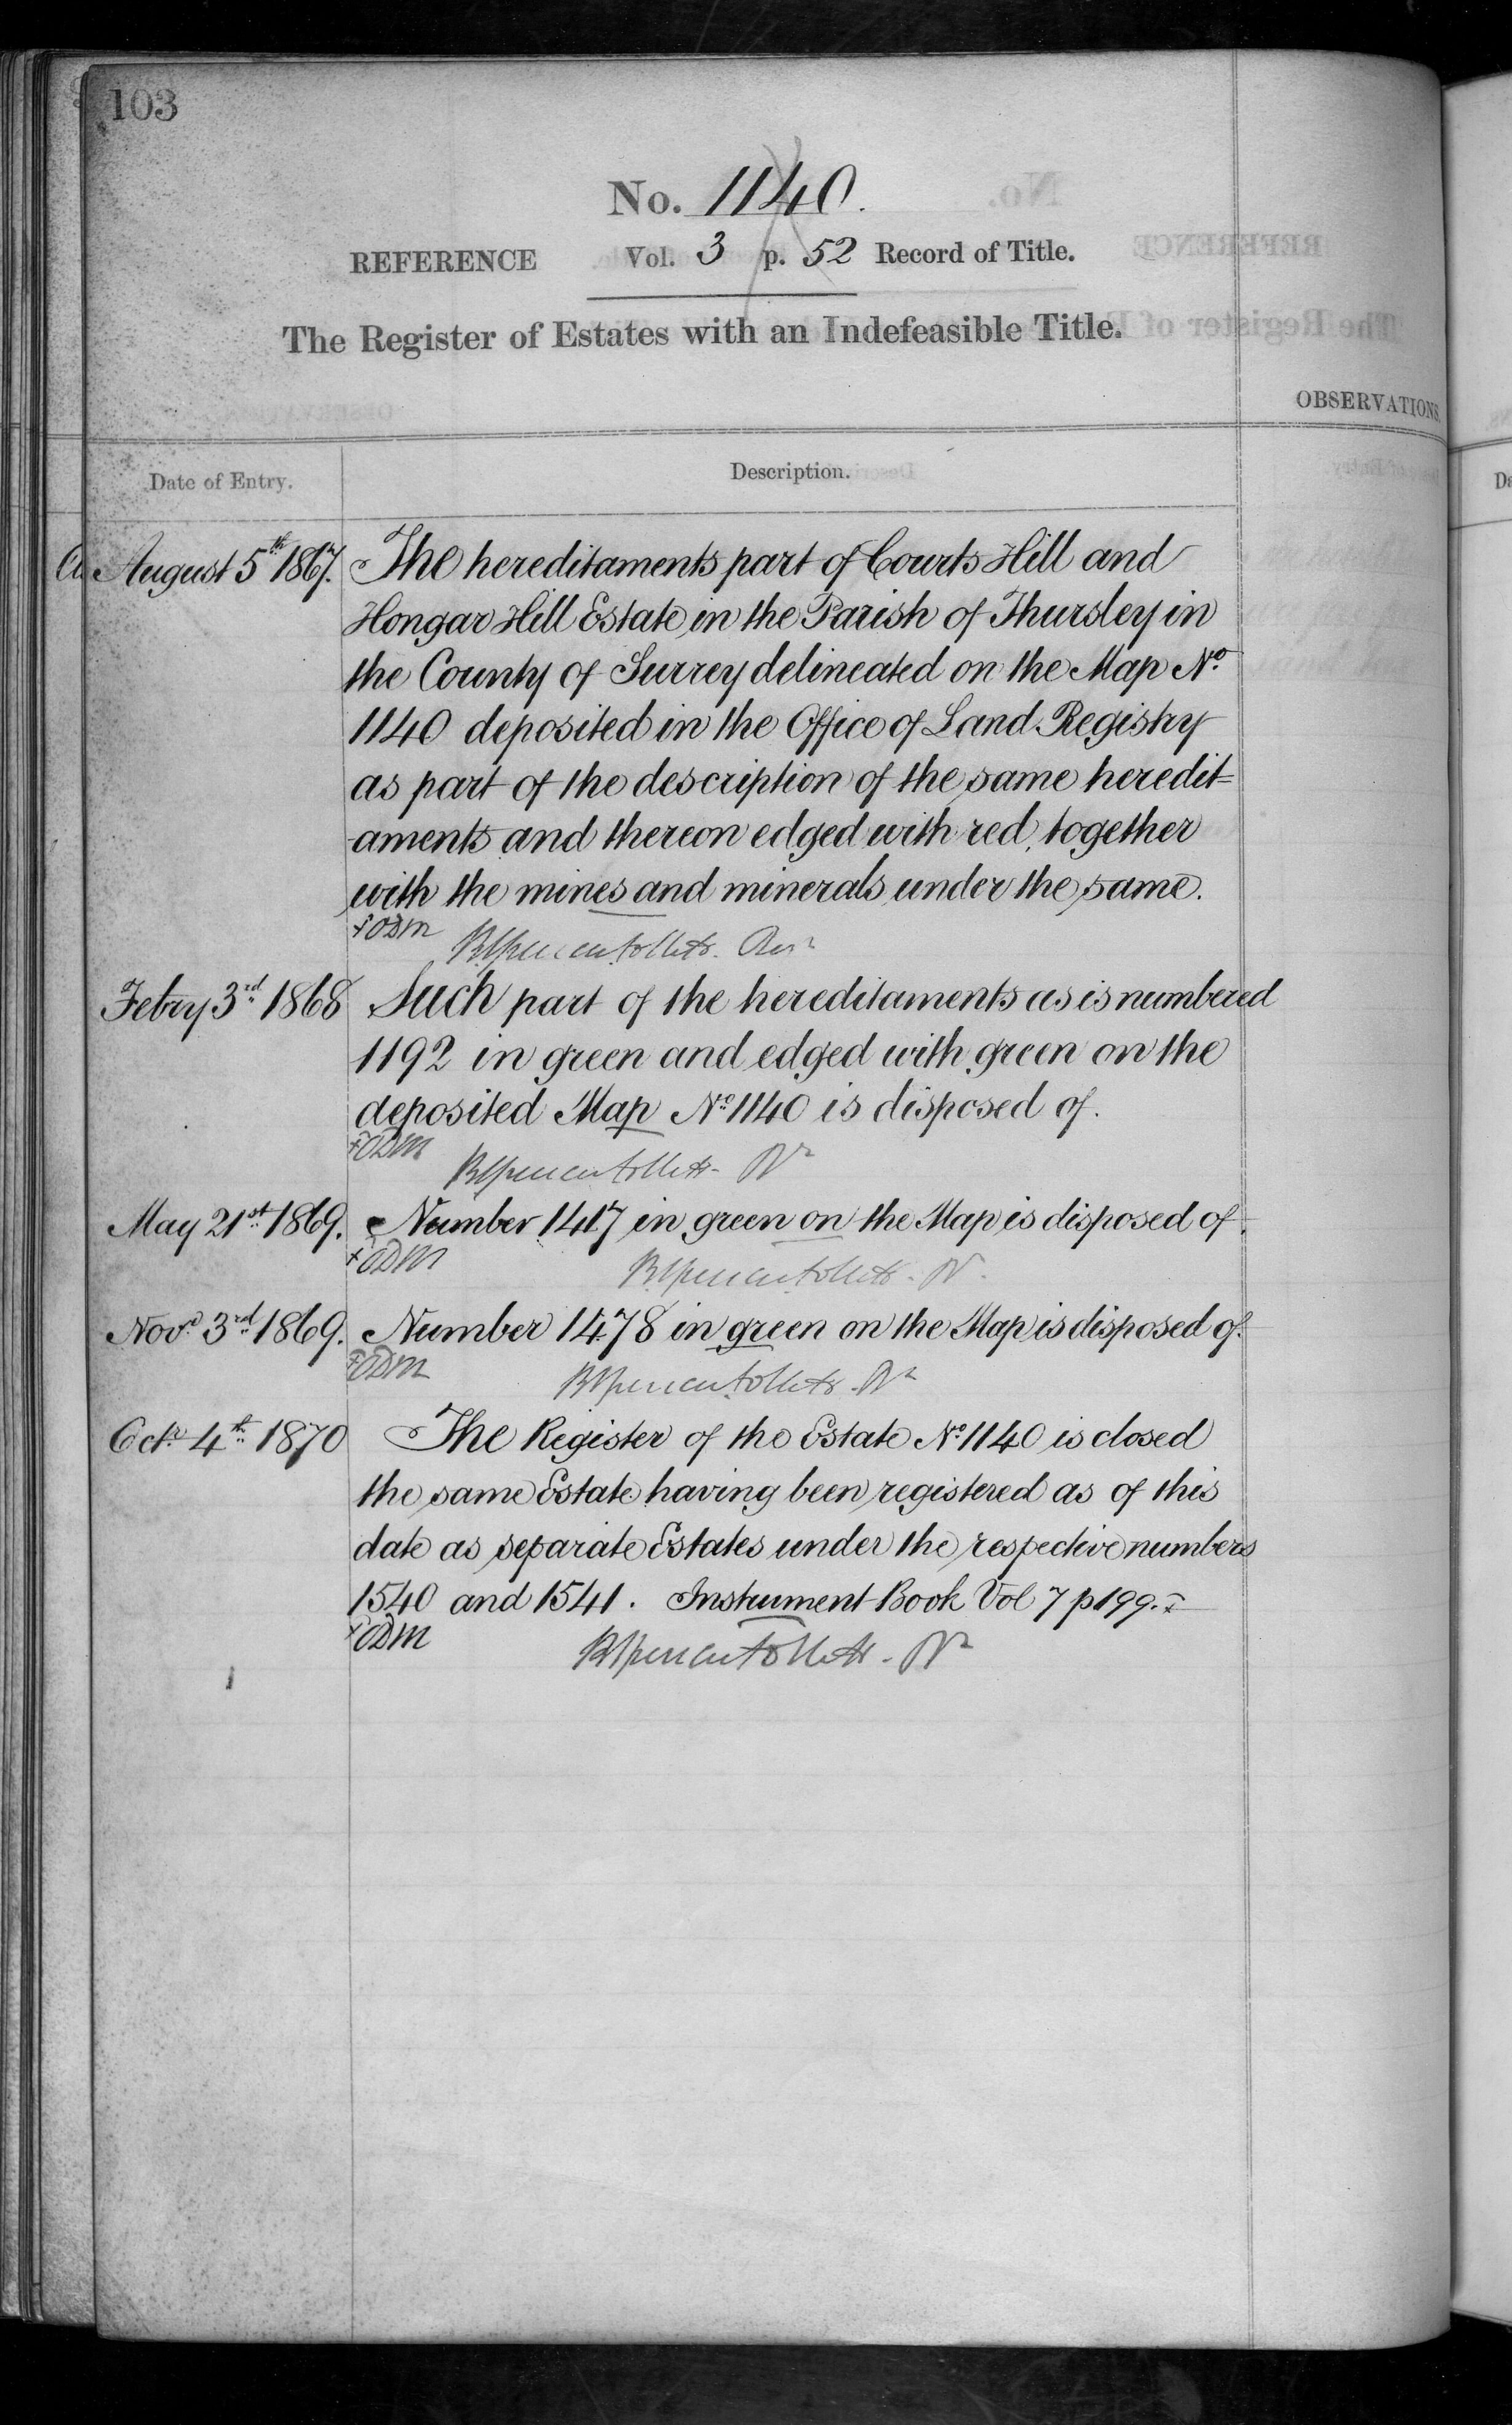 103
No. 1140.
REFERENCE Vol. 3 p. 52 Record of Title.
The Register of Estates with an Indefeasible Title.
OBSERVATIONS.
Date of Entry. Description.
August 5th 1867. The hereditaments part of Courts Hill and
Hongar Hill Estate in the Parish of Thursley in
the County of Surrey delineated on the Map No.
1140 deposited in the Office of Land Registry
as part of the description of the same heredit=
-aments and thereon edged with red, together
with the mines and minerals under the same.
+ODM
Febry 3rd 1868 Such part of the hereditaments as is numbered
1192 in green and edged with green on the
deposited Map No. 1140 is disposed of.
+ODM
May 21st 1869. Number 1417 in green on the Map is disposed of.
+ODM
Novr 3rd 1869. Number 1478 in green on the Map is disposed of.
+ODM
Octr 4th 1870 The Register of the Estate No. 1140 is closed
the same Estate having been registered as of this
date as separate Estates under the respective numbers
1540 and 1541. Instrument Book Vol 7 p 199.
+ODM